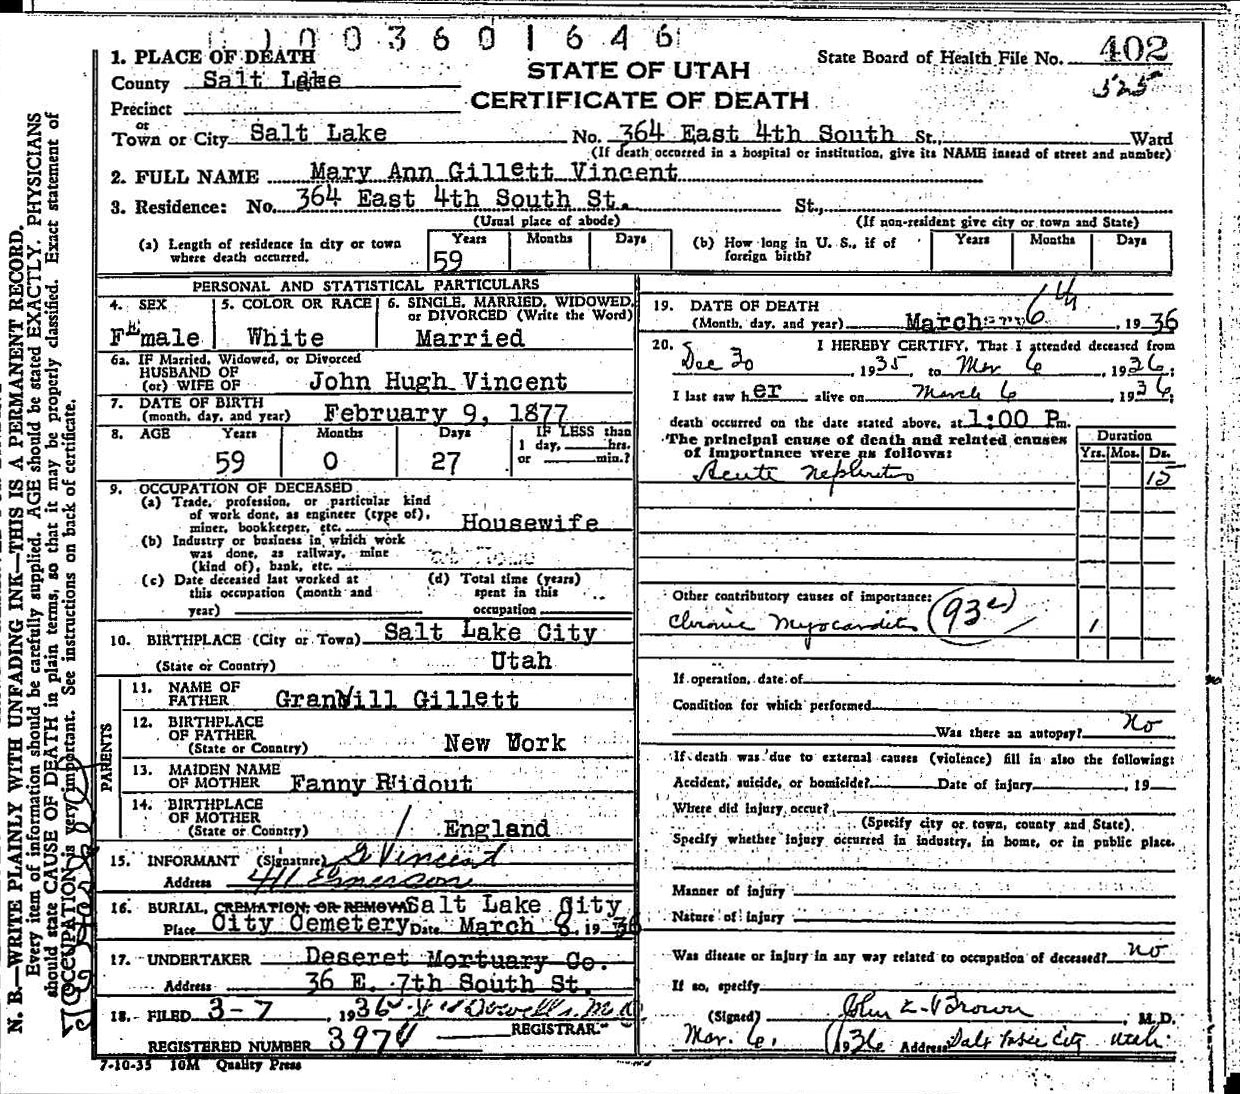 1003601646
1. PLACE OF DEATH
County Salt Lake
Precinct
or
Town or City Salt Lake No. 364 East 4th South St., Ward
(If death occurred in a hospital or institution, give its NAME instead of street and number)
STATE OF UTAH
CERTIFICATE OF DEATH
State Board of Health File No. 402
525
2. FULL NAME Mary Ann Gillett Vincent
3. Residence: No. 364 East 4th South St. St.,
(Usual place of abode) (If non-resident give city or town and State)
(a) Length of residence in city or town where death occurred. Years 59 Months Days
(b) How long in U. S., if of foreign birth? Years Months Days
PERSONAL AND STATISTICAL PARTICULARS
4. SEX FEmale
5. COLOR OR RACE White
6. SINGLE, MARRIED, WIDOWED, or DIVORCED (Write the Word) Married
6a. IF Married, Widowed, or Divorced
HUSBAND OF
(or) WIFE OF John Hugh Vincent
7. DATE OF BIRTH
(month, day, and year) February 9, 1877
8. AGE Years 59 Months 0 Days 27 IF LESS than 1 day, hrs. or min.?
9. OCCUPATION OF DECEASED
(a) Trade, profession, or particular kind
of work done, as engineer (type of),
miner, bookkeeper, etc. Housewife
(b) Industry or business in which work
was done, as railway, mine
(kind of), bank, etc.
(c) Date deceased last worked at
this occupation (month and
year)
(d) Total time (years)
spent in this
occupation
10. BIRTHPLACE (City or Town) Salt Lake City
(State or Country) Utah
PARENTS
11. NAME OF
FATHER Granvill Gillett
12. BIRTHPLACE
OF FATHER
(State or Country) New York
13. MAIDEN NAME
OF MOTHER Fanny Ridout
14. BIRTHPLACE
OF MOTHER
(State or Country) England
15. INFORMANT (Signature) G Vincent
Address 411 Emerson
16. BURIAL, CREMATION, OR REMOVAL Salt Lake City
Place City Cemetery Date March 8, 1936
17. UNDERTAKER Deseret Mortuary Co.
Address 36 E. 7th South St.
18. FILED 3-7 1936 M.D.
REGISTRAR.
REGISTERED NUMBER 3974
7-10-35 10M Quality Press
19. DATE OF DEATH
(Month, day, and year) March 6th, 1936
20. I HEREBY CERTIFY, That I attended deceased from
Dec 30, 1935, to Mar 6, 1936;
I last saw her alive on March 6, 1936;
death occurred on the date stated above, at 1:00 Pm.
The principal cause of death and related causes
of importance were as follows:
Duration
Yrs. Mos. Ds.
Acute Nephritis 15
Other contributory causes of importance:
Chronic Myocarditis (93c) 1
If operation, date of
Condition for which performed
Was there an autopsy? No
If death was due to external causes (violence) fill in also the following:
Accident, suicide, or homicide? Date of injury, 19
Where did injury occur?
(Specify city or town, county and State)
Specify whether injury occurred in industry, in home, or in public place.
Manner of injury
Nature of injury
Was disease or injury in any way related to occupation of deceased? No
If so, specify
(Signed) John Z. Brown, M. D.
Mar. 6, 1936 Address Salt Lake City Utah
N. B.—WRITE PLAINLY WITH UNFADING INK—THIS IS A PERMANENT RECORD.
Every item of information should be carefully supplied. AGE should be stated EXACTLY. PHYSICIANS
should state CAUSE OF DEATH in plain terms, so that it may be properly classified. Exact statement of
OCCUPATION is very important. See instructions on back of certificate.